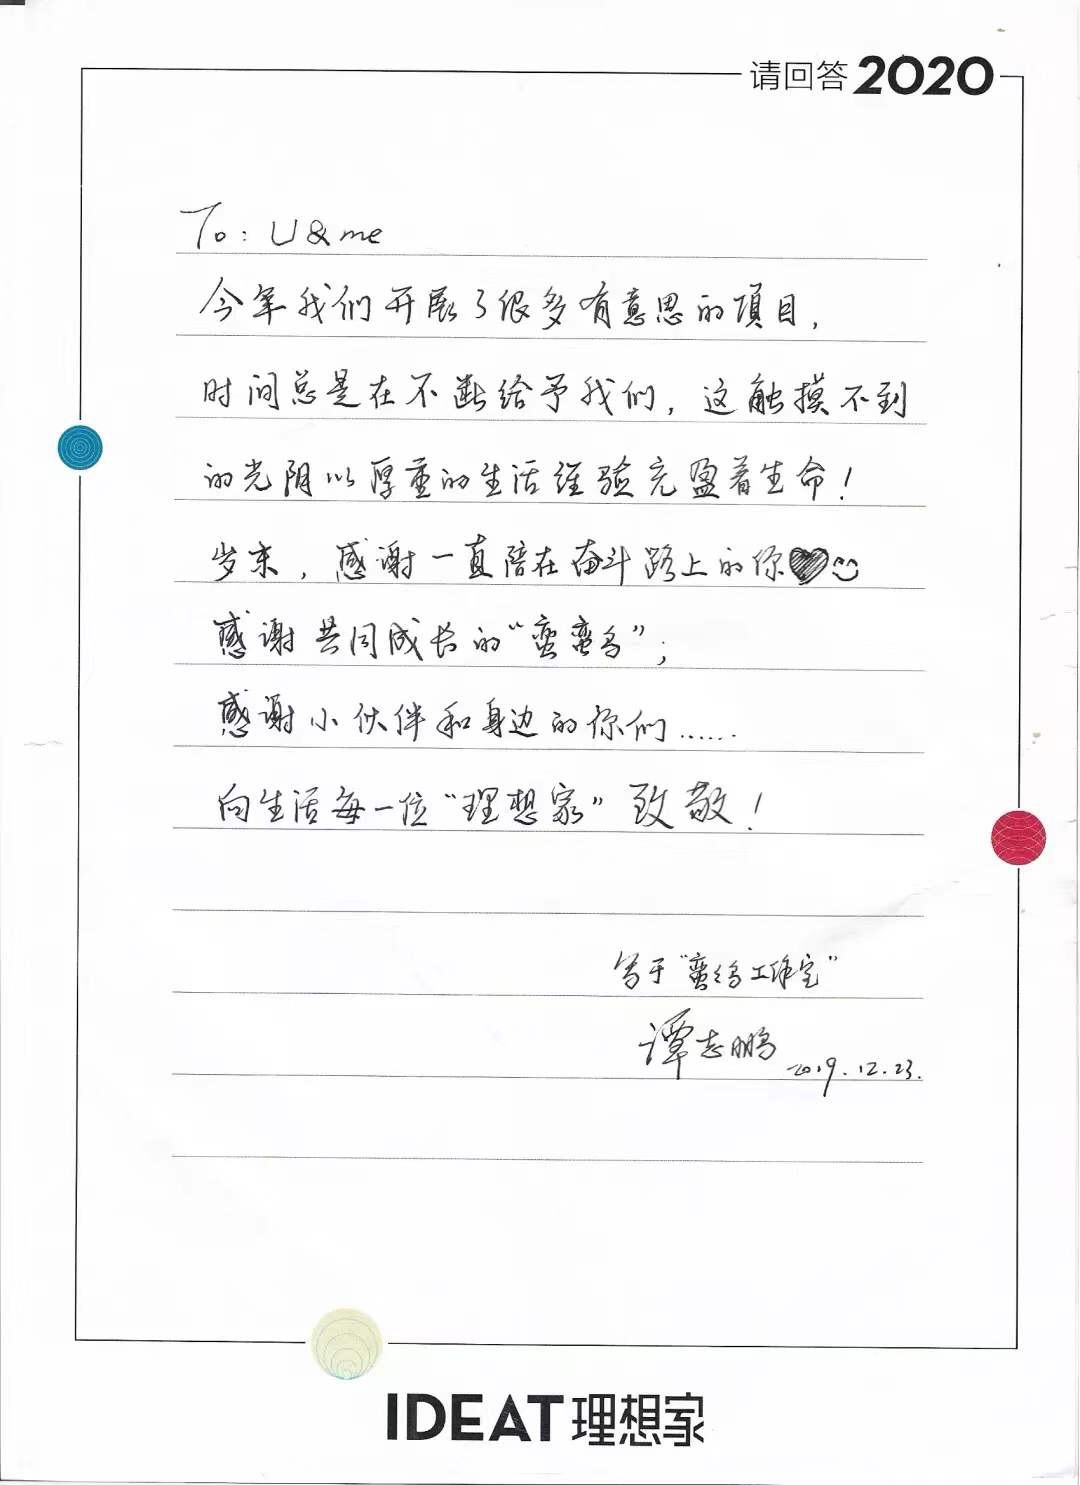 请回答2020
To: U&me
今年我们开展了很多有意思的項目,
时间总是在不断给予我们, 这触摸不到
的光阴以厚重的生活经验充盈着生命!
岁末, 感谢一直陪在奋斗路上的你
感谢共同成长的“蛮蛮鸟”;
感谢小伙伴和身边的你们……
向生活每一位“理想家”致敬!
写于“蛮鸟工作室”
谭志鹏 2019.12.23.
IDEAT理想家